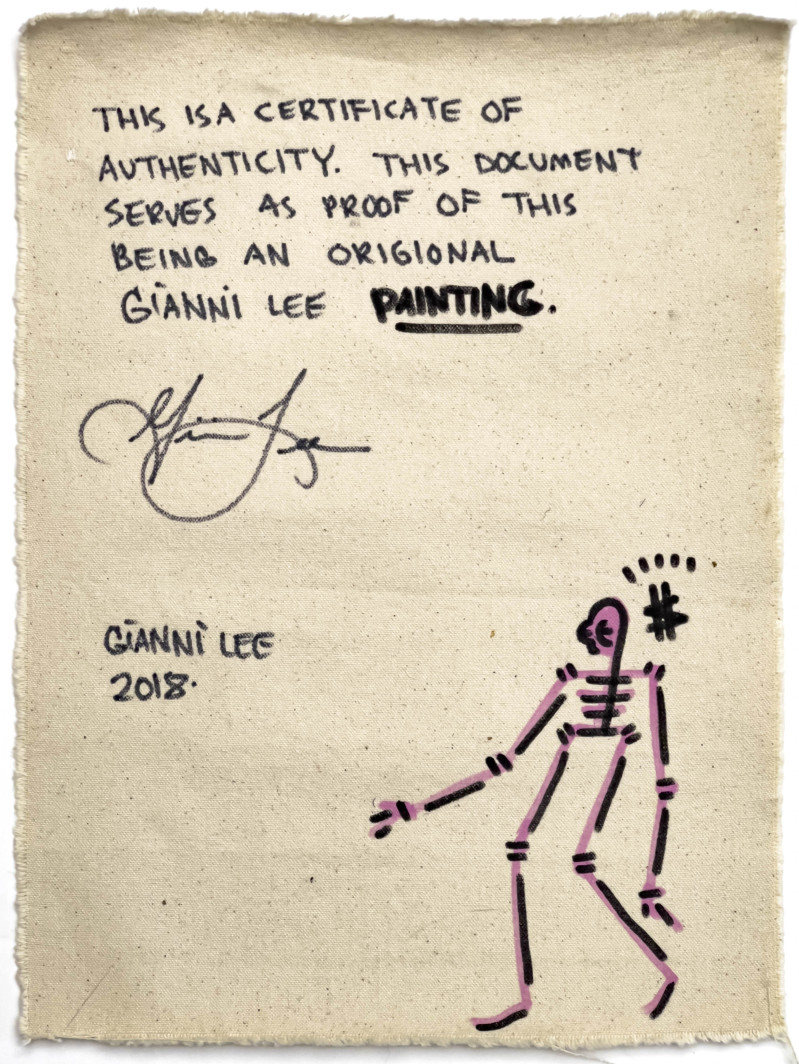 THIS IS A CERTIFICATE OF
AUTHENTICITY. THIS DOCUMENT
SERVES AS PROOF OF THIS
BEING AN ORIGIONAL
GIANNI LEE PAINTING.
Gianni Lee
GIANNI LEE
2018.
#